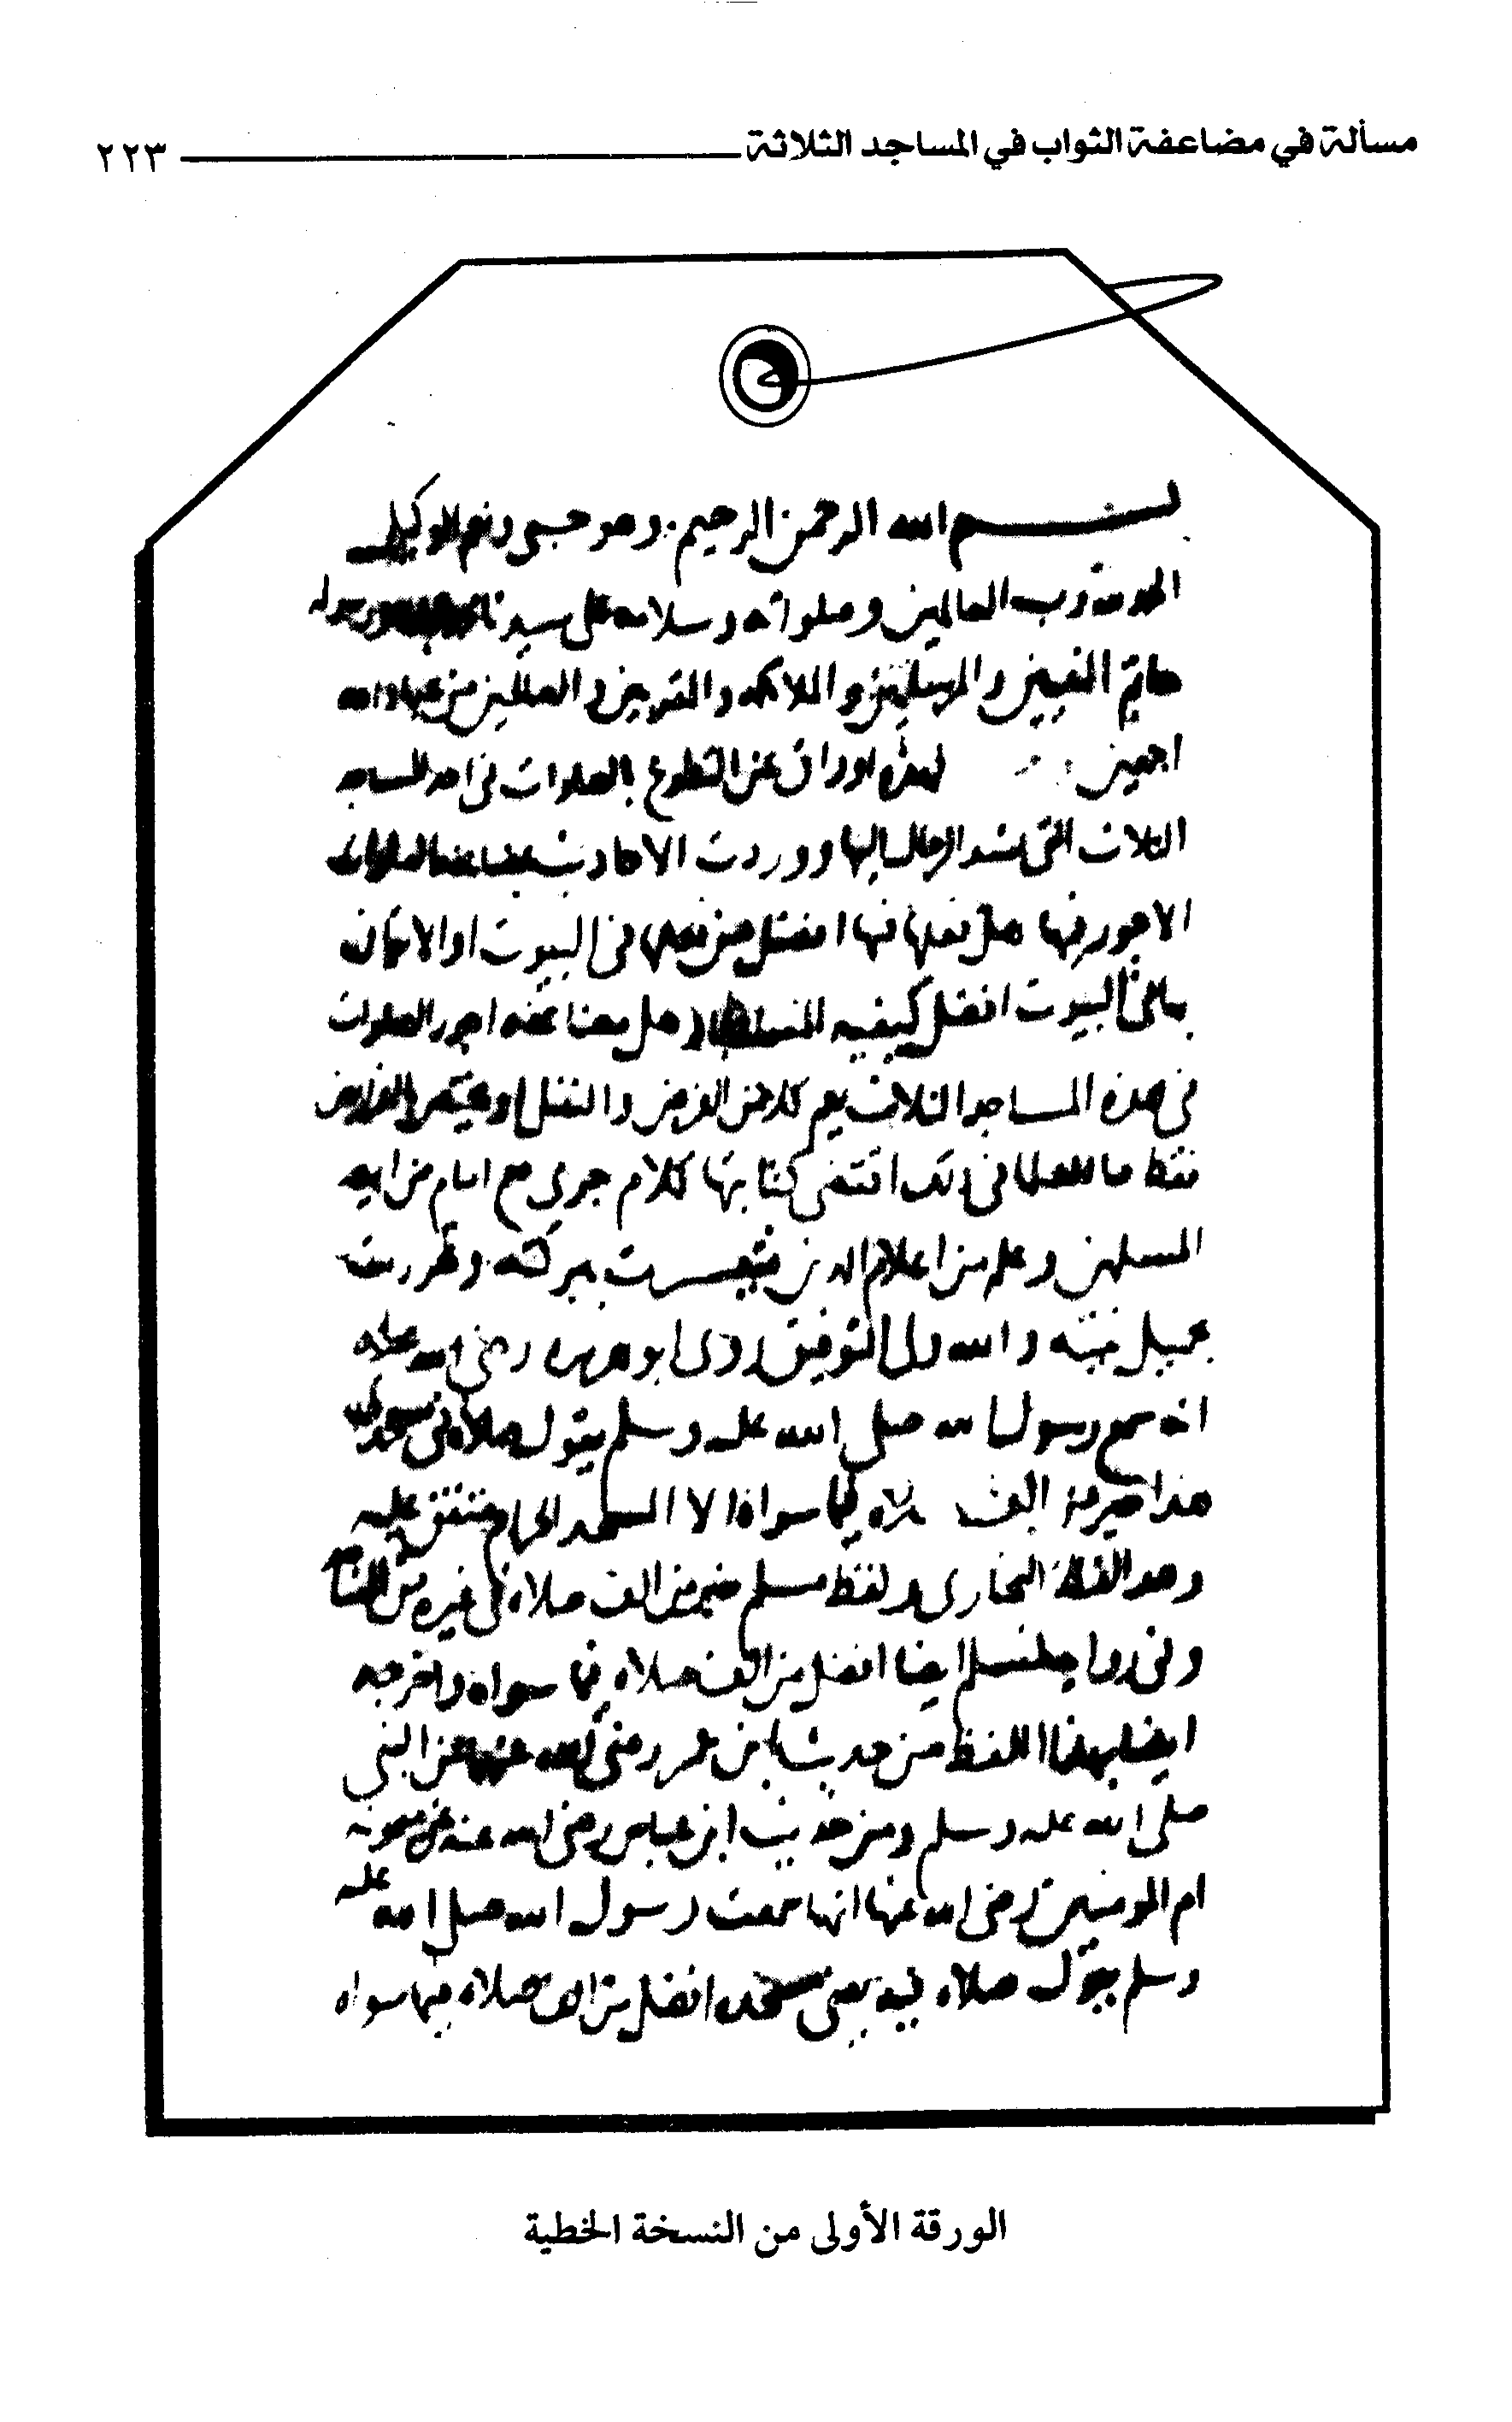 مسألة في مضاعفة الثواب في المساجد الثلاثة ٢٢٣
بسم الله الرحمن الرحيم وهو حسبي ونعم الوكيل
الحمد لله رب العالمين وصلواته وسلامه على سيدنا ورسوله
خاتم النبيين والمرسلين والملائكه والمقربين والصالحين من عباد الله
اجمعين فهذه اوراق عن التطوع بالصلوات في احد المساجد
الثلاث التي تشد الرحال اليها ووردت الاحاديث بمضاعفة
الاجور فيها هل فعلها فيها افضل من فعلها في البيوت او الاتيان
بها في البيوت افضل كبقيه وهل مضاعفه اجور الصلوات
في هذه المساجد الثلاث يعم كلا من الفرض والنفل او يختص بالفرايض
فقط ما للعلما في ذلك اقتضى كتابتها كلام جرى مع امام من ايمه
المسلمين وعلم من اعلام الدين تيسرت ببركته وقررت
بجميل نيته والله ولي التوفيق روى ابو هريره رضي الله عنه
انه سمع رسول الله صلى الله عليه وسلم يقول صلاة في مسجدي
هذا خير من الف صلاه فيما سواه الا المسجد الحرام متفق عليه
وهذا لفظ البخاري ولفظ مسلم خير من الف صلاه في غيره من المساجد
وفي روايه لمسلم ايضا افضل من الف صلاه فيما سواه واخرجه
ايضا بهذا اللفظ من حديث ابن عمر رضي الله عنهما عن النبي
صلى الله عليه وسلم ومن حديث ابن عباس رضي الله عنه عن ميمونه
ام المومنين رضي الله عنها انها سمعت رسول الله صلى الله عليه
وسلم يقول صلاه فيه يعني مسجده افضل من الف صلاه فيما سواه
الورقة الأولى من النسخة الخطية